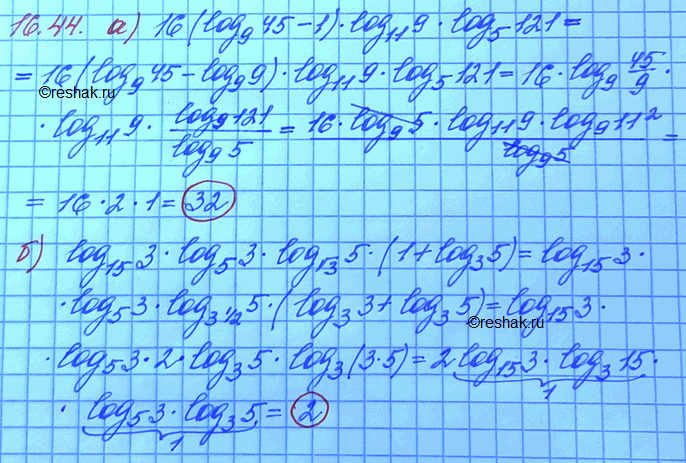 16.44. а) 16(log₉45-1)·log₁₁9·log₅121=
=16(log₉45-log₉9)·log₁₁9·log₅121=16·log₉ 45/9·
©reshak.ru
·log₁₁9· log₉121/log₉5 = 16·log₉5·log₁₁9·log₉11²/log₉5 =
=16·2·1=32
б) log₁₅3·log₅3·log_√3 5·(1+log₃5)=log₁₅3·
·log₅3·log_3^1/2 5·(log₃3+log₃5)=log₁₅3·
©reshak.ru
·log₅3·2·log₃5·log₃(3·5)=2log₁₅3·log₃15·
1
·log₅3·log₃5=2
1